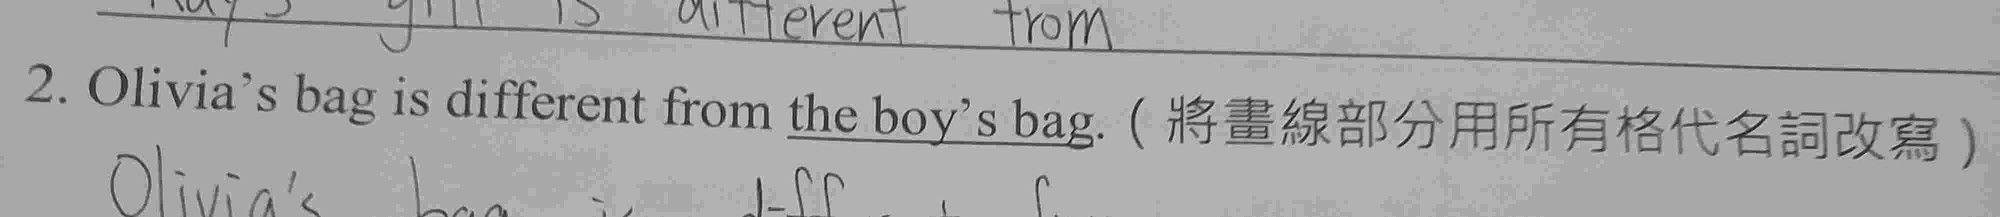 is different from
2. Olivia's bag is different from the boy's bag. (將畫線部分用所有格代名詞改寫)
Olivia's bag is